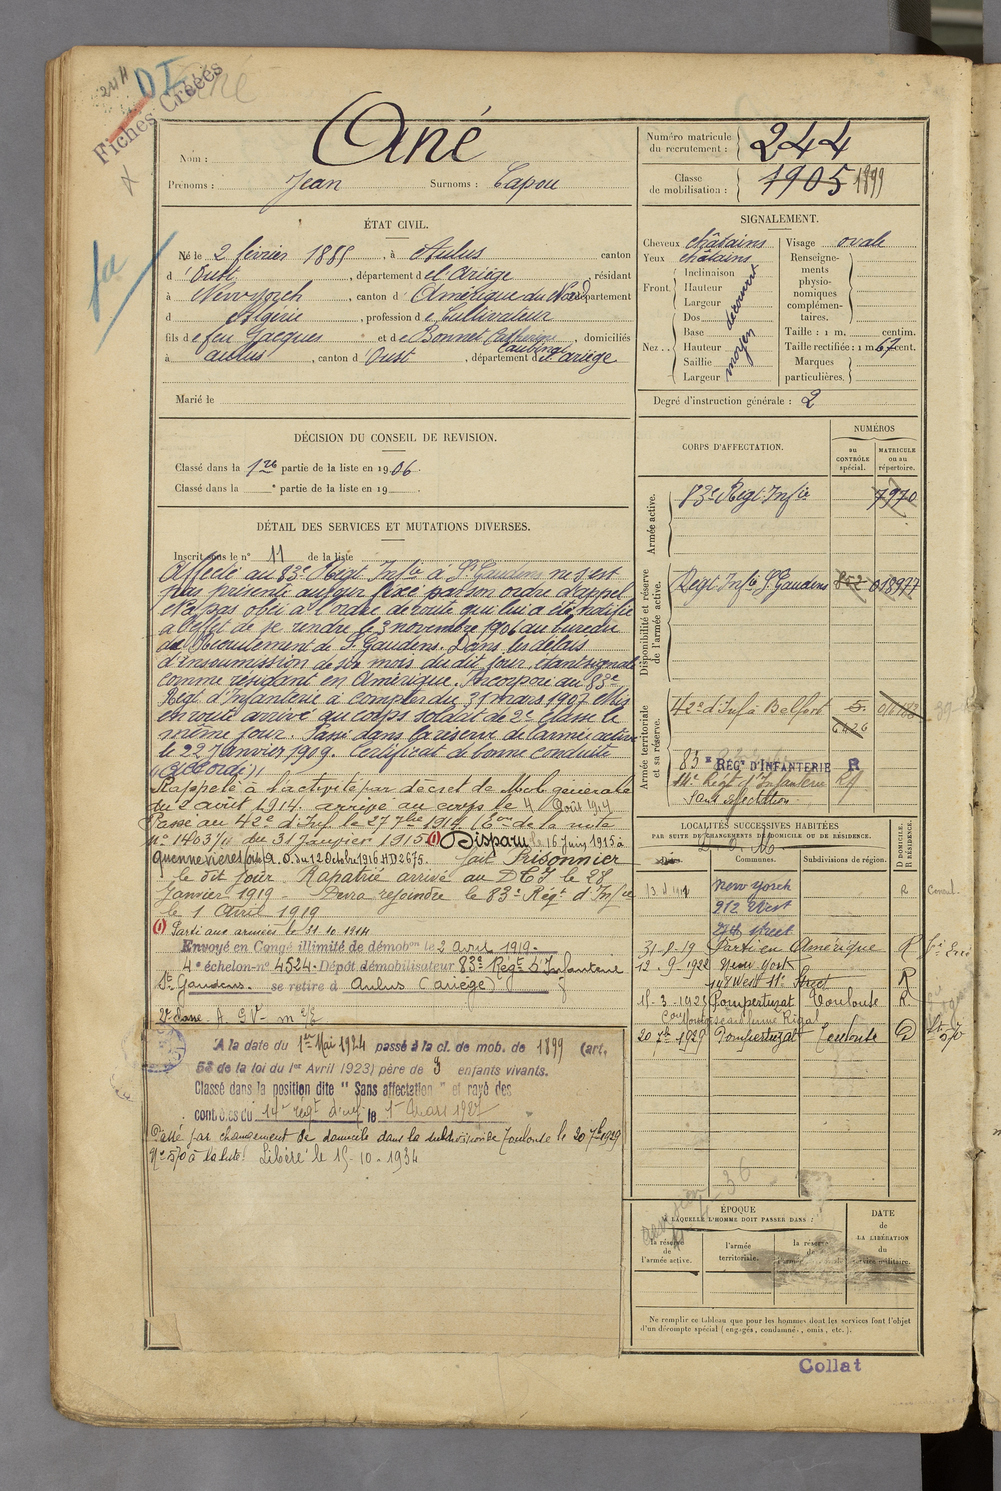 244
DI
Ané
Fiches Créées
Nom : Ané
Prénoms : Jean Surnoms : Capou
Numéro matricule du recrutement : 244
Classe de mobilisation : 1905 1899
ÉTAT CIVIL.
Né le 2 février 1885, à Aulus canton
d'Oust, département de l'Ariège, résidant
à New-yorck, canton d'Amérique du Nord département
d Algérie, profession de Cultivateur
fils de feu Jacques et de Bonnet Catherine, domiciliés
Caubinal
à aulus, canton d'Oust, département de l'ariège
Marié le
SIGNALEMENT.
Cheveux châtains
Yeux châtains
Front. Inclinaison
Hauteur
Largeur
découvert
Nez .. Dos
Base
Hauteur
Saillie
Largeur
moyen
Visage ovale
Renseignements physionomiques complémentaires :
Taille : 1 m. centim.
Taille rectifiée : 1 m. 67 cent.
Marques particulières.
Degré d'instruction générale : 2
DÉCISION DU CONSEIL DE REVISION.
Classé dans la 1re partie de la liste en 1906.
Classé dans la e partie de la liste en 19
DÉTAIL DES SERVICES ET MUTATIONS DIVERSES.
Inscrit sous le n° 11 de la liste
Affecté au 83e Régt Infie à St Gaudens ne s'est
pas présenté au jour fixé par son ordre d'appel
N'a pas obéi à l'ordre de route qui lui a été notifié
à l'effet de se rendre le 3 novembre 1906 au bureau
de Recrutement de St Gaudens. Dans les délais
d'insoumission de six mois du dit jour, étant signalé
comme résidant en Amérique. Incorporé au 83e
Régt d'Infanterie à compter du 31 mars 1907 Mis
en route arrivé au corps soldat de 2e Classe le
même jour. Passé dans la réserve de l'armée active
le 22 Janvier 1909. Certificat de bonne conduite
"Accordé"
Rappelé à l'activité par décret de Mobon générale
du 2 août 1914. arrivé au corps le 4 Août 1914
Passé au 42e d'Inf le 27 7bre 1914 (Eon de la note
n° 1403/11 du 31 janvier 1915 (1) Disparu le 16 Juin 1915 à
Quennevières A. O. du 12 Octobre 1916 HD 2675. fait Prisonnier
le dit jour Rapatrié arrivé au DTI le 28
Janvier 1919 - Devra rejoindre le 83e Régt d'Infie
le 1 Avril 1919
(1) Parti aux armées le 31.10.1914
Envoyé en Congé illimité de démobon le 2 Avril 1919.
4e échelon-n° 4524. Dépôt démobilisateur 83e Régt d'Infanterie
St Gaudens. se retire à Aulus (ariège)
A la date du 1er Mai 1924 passé à la cl. de mob. de 1899 (art.
58 de la loi du 1er Avril 1923) père de 3 enfants vivants.
Classé dans la position dite "Sans affectation" et rayé des
contrôles du 14e régt d'inf le 1er Mars 1927
Passé par changement de domicile dans la subdivision de Toulouse le 20 7bre 1929
N° 570 à la liste. Libéré le 15-10-1934
CORPS D'AFFECTATION.
NUMÉROS
au CONTRÔLE spécial.
MATRICULE ou au répertoire.
Armée active.
83e Régt Infie 7970
Disponibilité et réserve de l'armée active.
Régt Infie St Gaudens 852 018977
Armée territoriale et sa réserve.
42e d'Inf à Belfort
6426
83e RÉGt D'INFANTERIE R
14e Régt d'Infanterie
Sans affectation
LOCALITÉS SUCCESSIVES HABITÉES
PAR SUITE DE CHANGEMENTS DE DOMICILE OU DE RÉSIDENCE.
D DOMICILE, R RÉSIDENCE.
Communes. Subdivisions de région.
New yorck R
212 West
31-8-19 Parti en Amérique R
12-9-1922 New York
148 West 11e Street R
15-3-1923 Pompertuzat Toulouse R.
20 7bre 1929 Pompertuzat Toulouse D
ÉPOQUE
À LAQUELLE L'HOMME DOIT PASSER DANS :
la réserve de l'armée active.
l'armée territoriale.
la réserve de l'armée
DATE de LA LIBÉRATION du service militaire.
Ne remplir ce tableau que pour les hommes dont les services font l'objet
d'un décompte spécial (engagés, condamnés, omis, etc.).
Collat